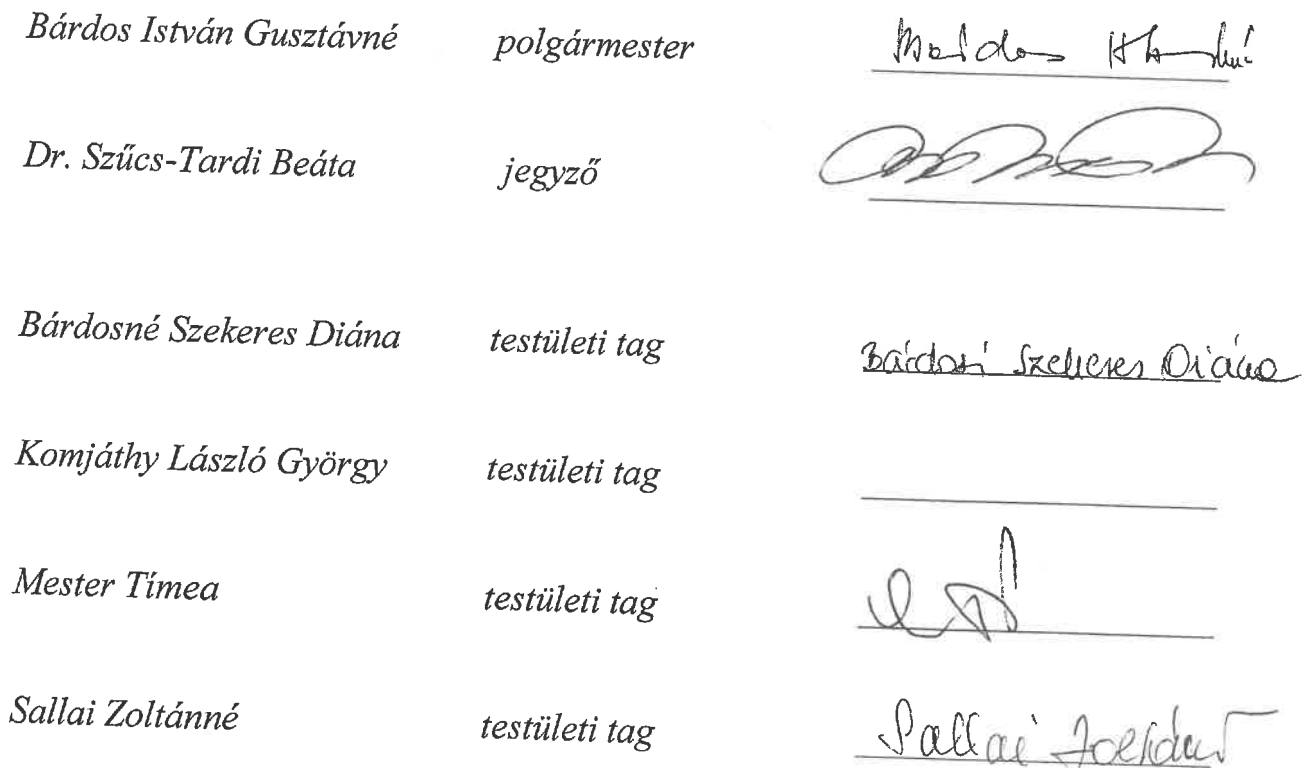 Bárdos István Gusztávné polgármester
Dr. Szűcs-Tardi Beáta jegyző
Bárdosné Szekeres Diána testületi tag Szekeres Diána
Komjáthy László György testületi tag
Mester Tímea testületi tag
Sallai Zoltánné testületi tag Sallai Zoltánné